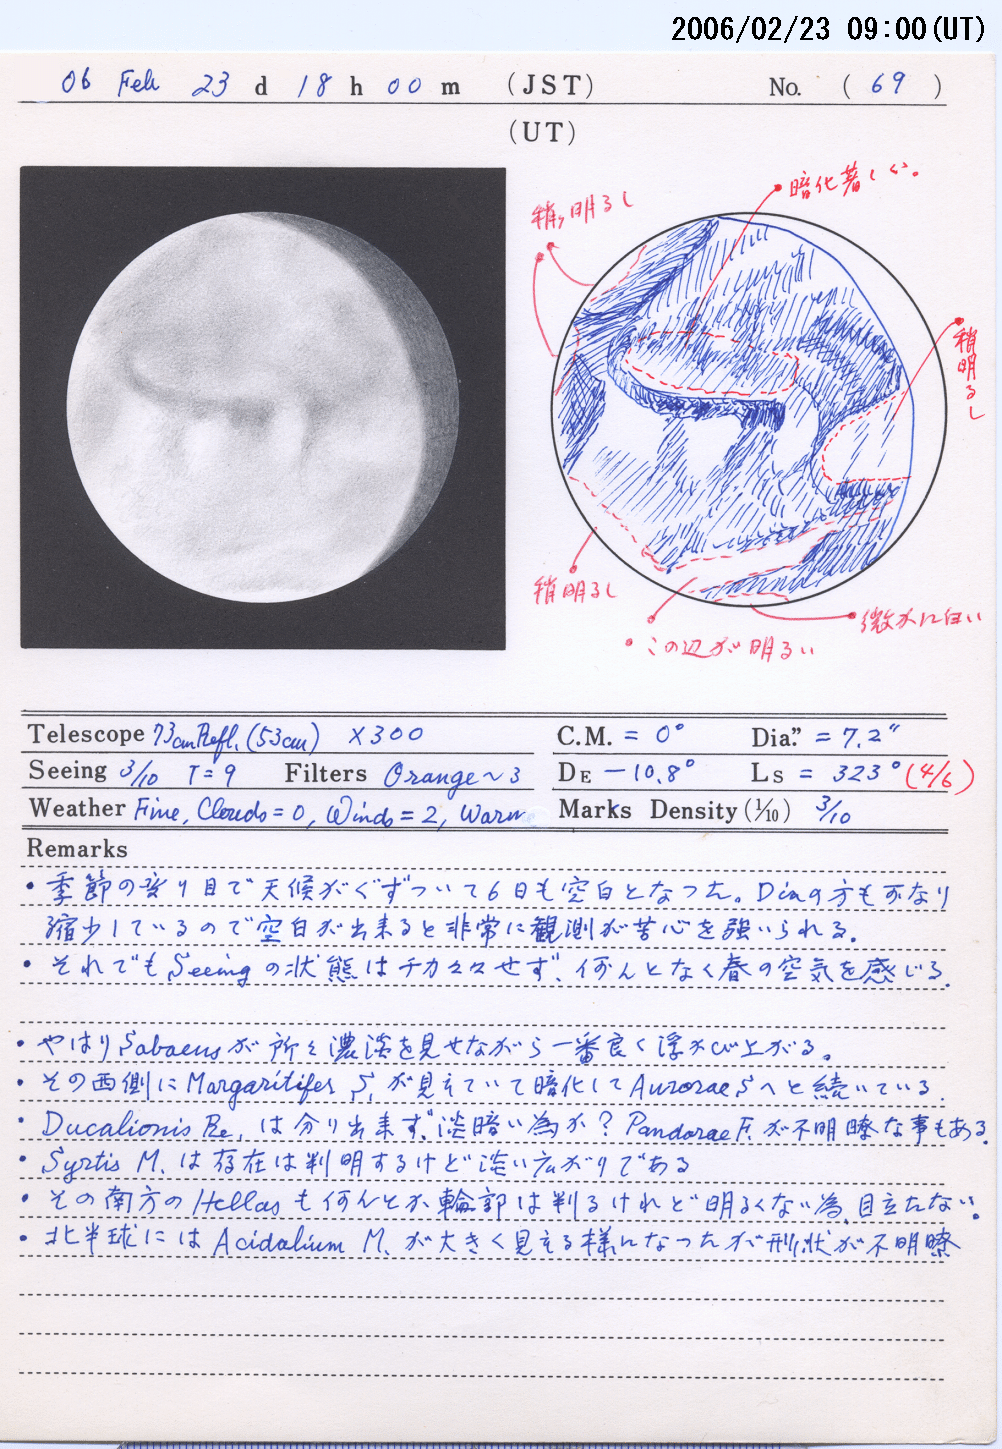 2006/02/23 09:00(UT)
06 Feb 23 d 18 h 00 m (JST) No. ( 69 )
(UT)
稍々明るし
暗化著しい。
稍明るし
稍明るし
微かに白い
・この辺が明るい
Telescope 73cm Refl. (53cm) ×300
C.M. = 0° Dia." = 7.2"
Seeing 3/10 T=9 Filters Orange~3
DE -10.8° Ls = 323° (4/6)
Weather Fine, Clouds=0, Winds=2, Warm
Marks Density (1/10) 3/10
Remarks
・季節の変り目で天候がぐずついて6日も空白となった。Diaの方も可なり
縮少しているので空白が出来ると非常に観測が苦心を強いられる。
・それでもSeeingの状態はチカチカせず、何んとなく春の空気を感じる.
・やはりSabaeusが所々濃淡を見せながら一番良く浮かび上がる。
・その西側にMargaritifer S.が見えていて暗化してAurorae Sへと続いている.
・Ducalionis Re. は分り出来ず、淡暗い為か? Pandorae F.が不明瞭な事もある.
・Syrtis M. は存在は判明するけど淡い広がりである
・その南方のHellasも何んとか輪郭は判るけれど明るくない為、目立たない。
・北半球にはAcidalium M. が大きく見える様になったが形状が不明瞭